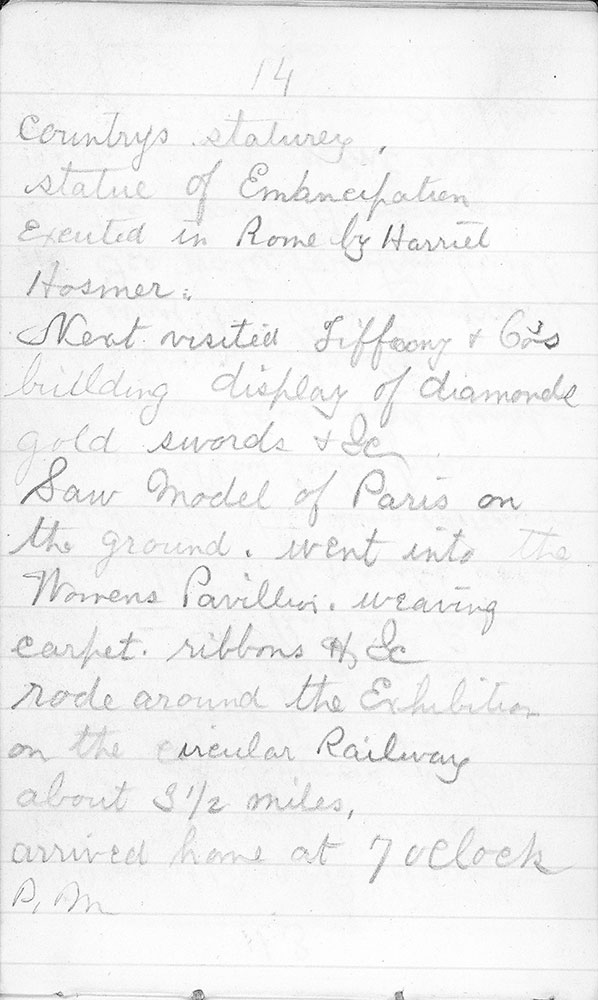 14
Countrys staturey,
statue of Emancipation
Excuted in Rome by Harriet
Hosmer.
Next visited Tiffany & Co's
building display of diamonds
gold swords & &c
Saw Model of Paris on
the ground. went into the
Womens Pavillion. weaving
carpet. ribbons &c
rode around the Exhibition
on the circular Railway
about 3 1/2 miles,
arrived home at 7 oclock
P, M